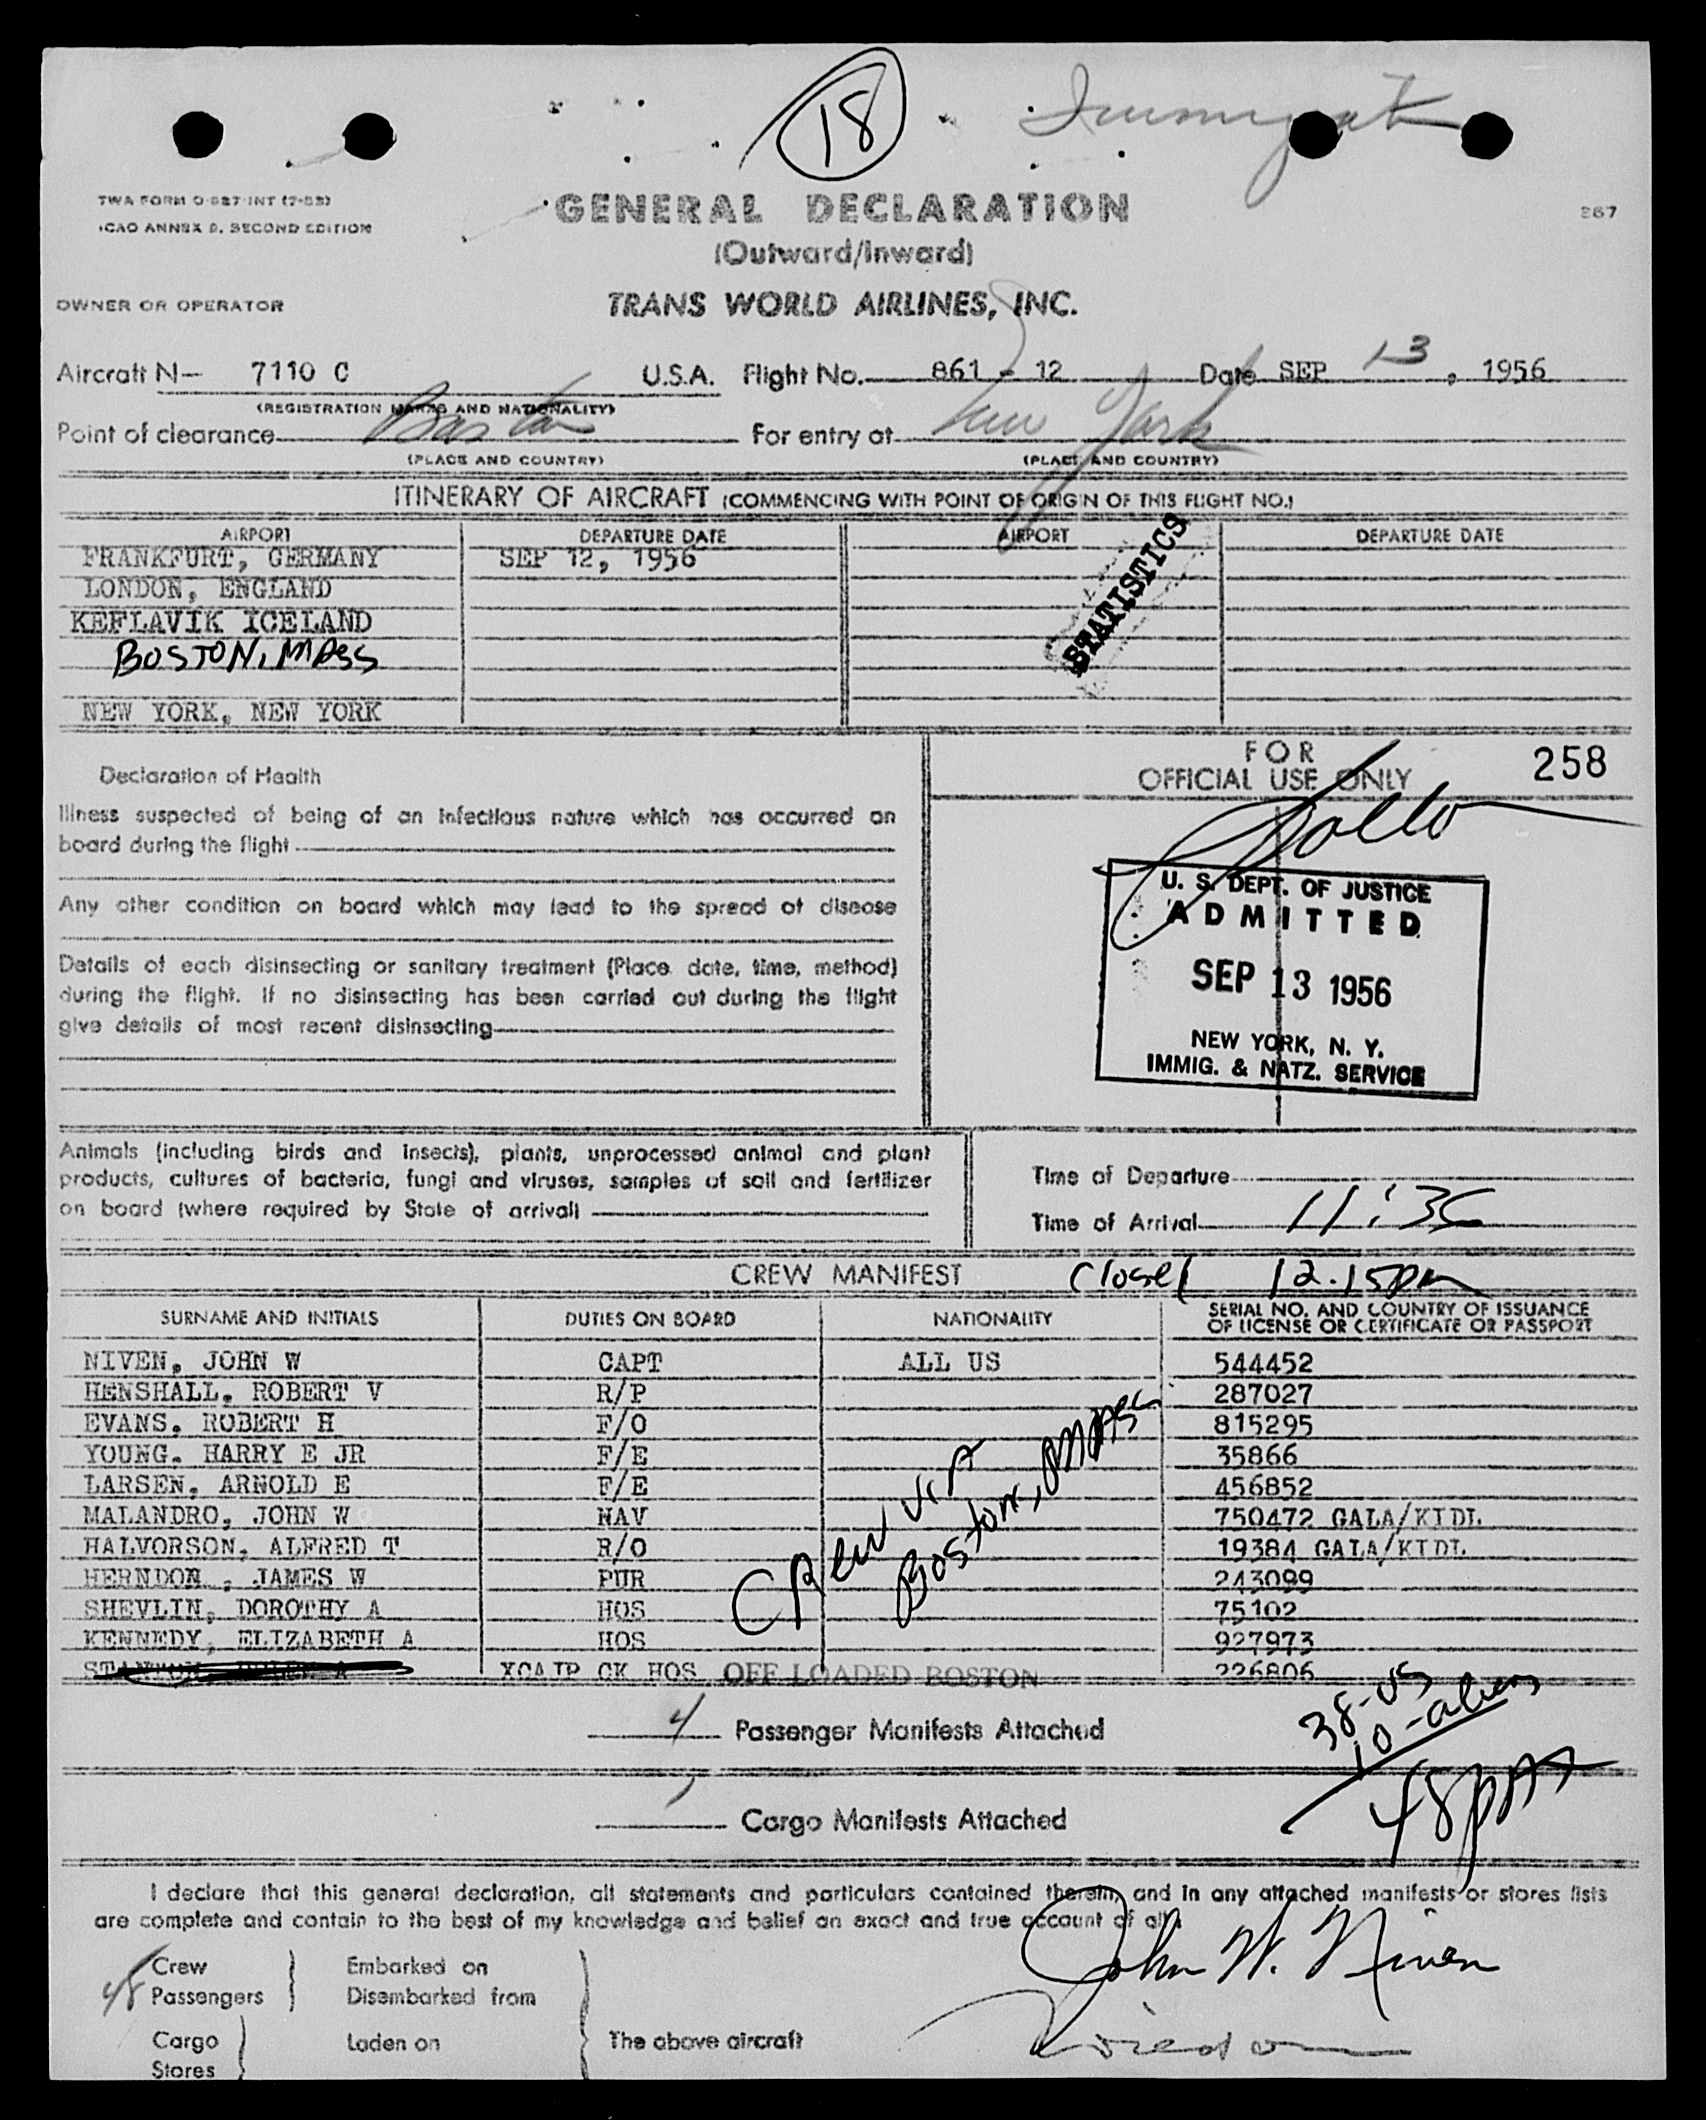 18
TWA FORM O-527-INT (7-53)
ICAO ANNEX 9, SECOND EDITION
GENERAL DECLARATION
267
(Outward/Inward)
OWNER OR OPERATOR
TRANS WORLD AIRLINES, INC.
Aircraft N— 7110 C U.S.A. Flight No. 861 - 12 Date SEP 13, 1956
(REGISTRATION MARKS AND NATIONALITY)
Point of clearance Boston For entry at New York
(PLACE AND COUNTRY) (PLACE AND COUNTRY)
ITINERARY OF AIRCRAFT (COMMENCING WITH POINT OF ORIGIN OF THIS FLIGHT NO.)
AIRPORT DEPARTURE DATE AIRPORT DEPARTURE DATE
FRANKFURT, GERMANY SEP 12, 1956
LONDON, ENGLAND
KEFLAVIK ICELAND
BOSTON, MASS
NEW YORK, NEW YORK
STATISTICS
Declaration of Health
Illness suspected of being of an infectious nature which has occurred on
board during the flight
Any other condition on board which may lead to the spread of disease
Details of each disinsecting or sanitary treatment (Place, date, time, method)
during the flight. If no disinsecting has been carried out during the flight
give details of most recent disinsecting
FOR
OFFICIAL USE ONLY
258
U. S. DEPT. OF JUSTICE
ADMITTED
SEP 13 1956
NEW YORK, N. Y.
IMMIG. & NATZ. SERVICE
Animals (including birds and insects), plants, unprocessed animal and plant
products, cultures of bacteria, fungi and viruses, samples of soil and fertilizer
on board (where required by State of arrival)
Time of Departure
Time of Arrival 11:35
CREW MANIFEST Closed 12.15pm
SURNAME AND INITIALS DUTIES ON BOARD NATIONALITY SERIAL NO. AND COUNTRY OF ISSUANCE
OF LICENSE OR CERTIFICATE OR PASSPORT
NIVEN, JOHN W CAPT ALL US 544452
HENSHALL, ROBERT V R/P 287027
EVANS, ROBERT H F/O 815295
YOUNG, HARRY E JR F/E 35866
LARSEN, ARNOLD E F/E 456852
MALANDRO, JOHN W NAV 750472 GALA/KIDL
HALVORSON, ALFRED T R/O 19384 GALA/KIDL
HERNDON, JAMES W PUR 243099
SHEVLIN, DOROTHY A HOS 75102
KENNEDY, ELIZABETH A HOS 927973
STANTON, HELEN A XCAJP CK HOS OFF LOADED BOSTON 226806
CREW VIA
Boston, MASS
4 Passenger Manifests Attached
38-US
10-aliens
48 pax
Cargo Manifests Attached
I declare that this general declaration, all statements and particulars contained therein, and in any attached manifests or stores lists
are complete and contain to the best of my knowledge and belief an exact and true account of all
John W. Niven
Crew Embarked on
48 Passengers Disembarked from
Cargo Laden on The above aircraft
Stores